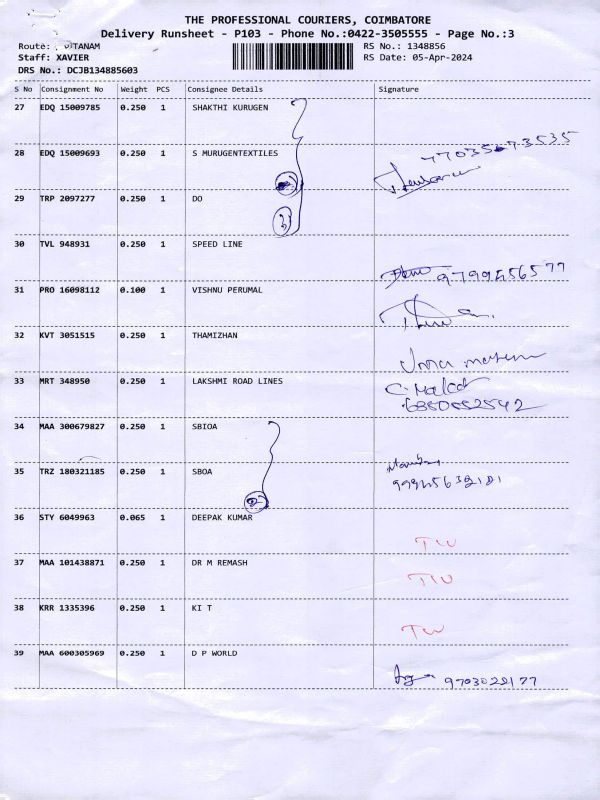 THE PROFESSIONAL COURIERS, COIMBATORE
Delivery Runsheet - P103 - Phone No.:0422-3505555 - Page No.:3
Route: TANAM RS No.: 1348856
Staff: XAVIER RS Date: 05-Apr-2024
DRS No.: DCJB134885603
S No Consignment No Weight PCS Consignee Details Signature
27 EDQ 15009785 0.250 1 SHAKTHI KURUGEN
28 EDQ 15009693 0.250 1 S MURUGENTEXTILES
29 TRP 2097277 0.250 1 DO
30 TVL 948931 0.250 1 SPEED LINE
9799456577
31 PRO 16098112 0.100 1 VISHNU PERUMAL
32 KVT 3051515 0.250 1 THAMIZHAN
33 MRT 348950 0.250 1 LAKSHMI ROAD LINES
34 MAA 300679827 0.250 1 SBIOA
35 TRZ 180321185 0.250 1 SBOA
36 STY 6049963 0.065 1 DEEPAK KUMAR
TW
37 MAA 101438871 0.250 1 DR M REMASH
TW
38 KRR 1335396 0.250 1 KI T
TW
39 MAA 600305969 0.250 1 D P WORLD